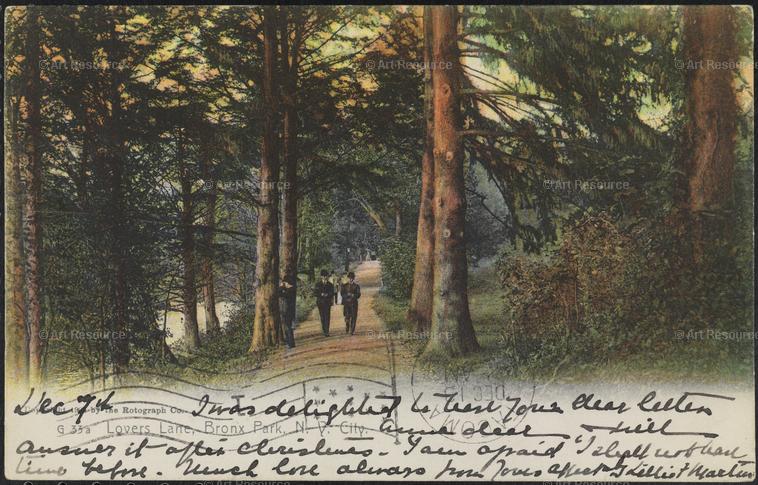 ©Art Resource ©Art Resource ©Art Resource
©Art Resource ©Art Resource
©Art Resource ©Art Resource ©Art Resource
by the Rotograph Co.
G 35a Lovers Lane, Bronx Park, N. Y. City.
Dec 7th I was delighted to hear your dear letter
Anna dear — will
answer it after Christmas - I am afraid I shall not have
time before. Much love always from Yours affect